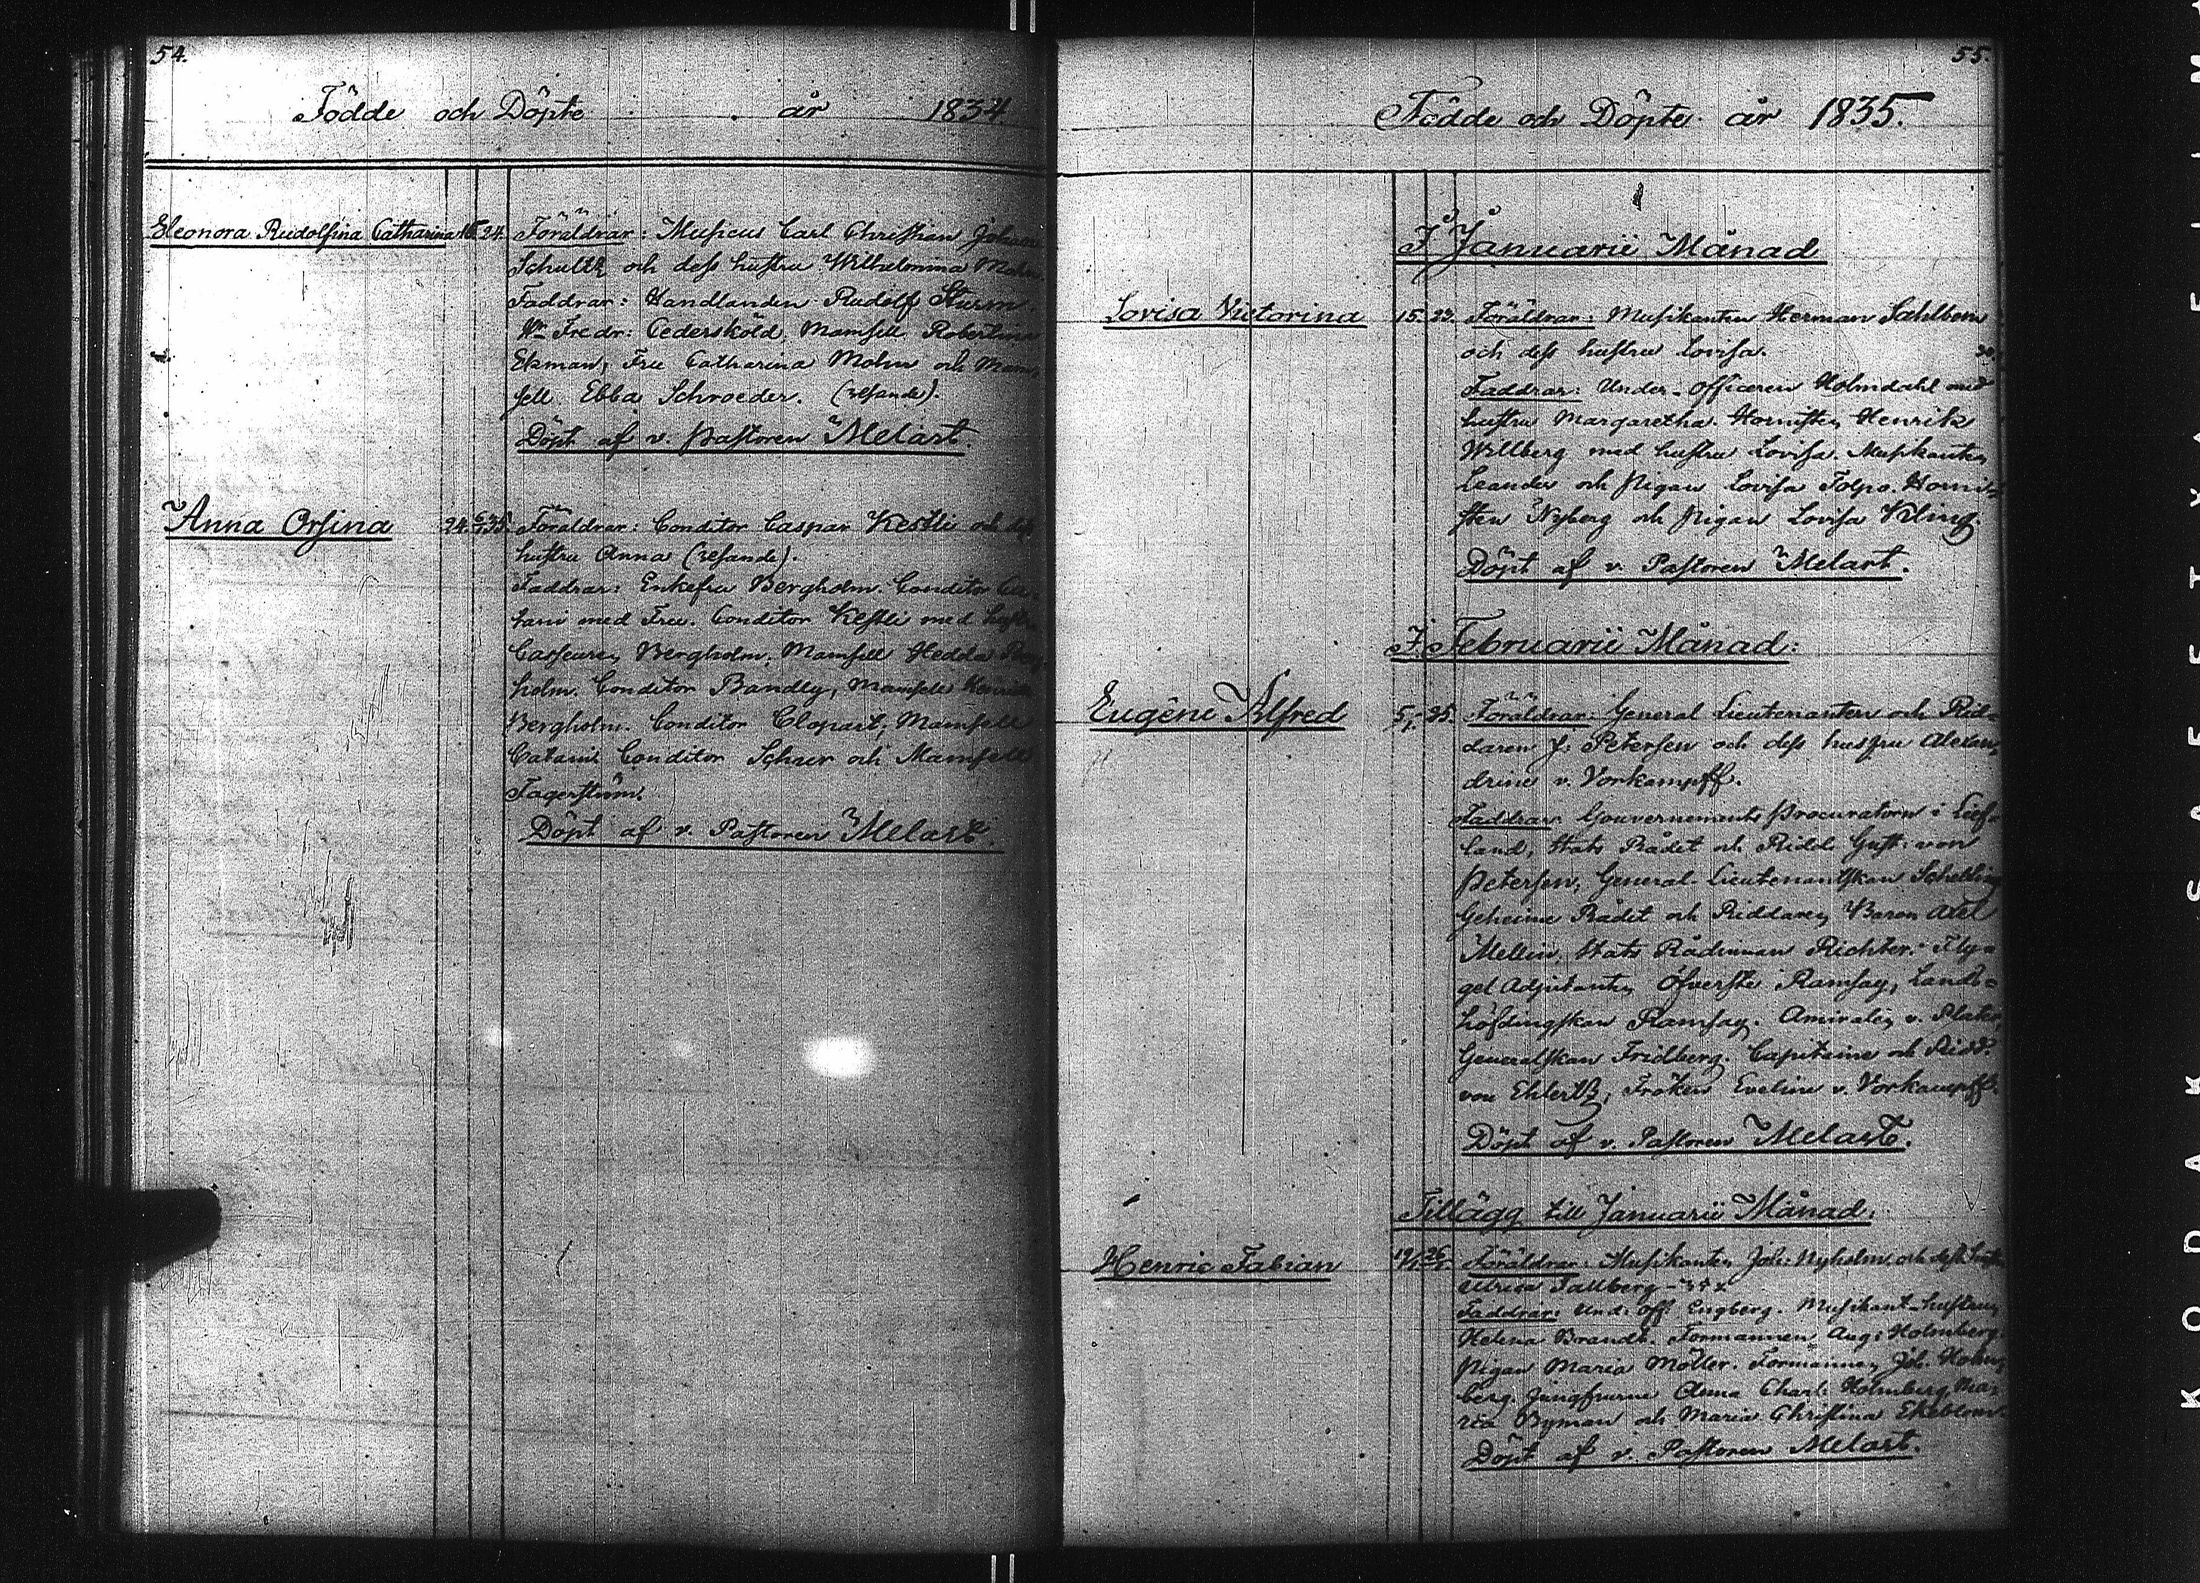 54.
Födde och Döpte år 1834
Eleonora Rudolfina Catharina 24. Föräldrar: Musicus Carl Christian Johann
Schultz och dess hustru Wilhelmina
Faddrar: Handlanden Rudolf Sturm.
Fredr: Cedersköld, Mamsell Robertina
Ekman, Fru Catharina Mohn och Mam-
sell Ebba Schroeder. (resande).
Döpt af v. Pastoren Melart.
Anna Orsina 24. Föräldrar: Conditor Caspar Kestli och dess
hustru Anna (resande).
Faddrar: Enkefru Bergholm. Conditor
med Fru. Conditor Kestli med
Bergholm, Mamsell Hedda Berg-
holm. Conditor Bandly, Mamsell
Bergholm. Conditor Clopart, Mamsell
Catani Conditor och Mamsell
Fagerström.
Döpt af v. Pastoren Melart.
55.
Födde och Döpte år 1835.
I Januarii Månad
Lovisa Victorina 15. 23. Föräldrar: Musikanten Herman Sahlbom
och dess hustru Lovisa.
Faddrar: Under-officeren Holmdahl med
hustru Margaretha. Hornisten Henrik
Willberg med hustru Lovisa. Musikanten
Leander och Pigan Lovisa Tolpo. Horni-
sten Nyberg och Pigan Lovisa Kling.
Döpt af v. Pastoren Melart.
I Februarii Månad:
Eugêne Alfred 5. 25. Föräldrar: General Lieutenanten och Rid-
daren J. Petersen och dess hustru Alexan-
drine v. Vorkampff.
Faddrar: Gouvernements Procuratorn i Lief-
land, Stats Rådet och Ridd. Gust: von
Petersen, General-Lieutenantskan
Geheime Rådet och Riddaren Baron Axel
Mellin, Stats Rådinnan Richter. Fly-
gel Adjutanten Öfverste Ramsay, Lands-
höfdingskan Ramsay. Amiralen v. Platen,
Generalskan Fridberg. Capitaine och Ridd.
von Ehlertz, Fröken Eveline v. Vorkampff.
Döpt af v. Pastoren Melart.
Tillägg till Januarii Månad:
Henric Fabian 19/1 26/1. Föräldrar: Musikanten Joh: Nyholm och dess
Ulrica Tallberg
Faddrar: Und: Off: Engberg. Musikant-hustrun
Helena Brandt. Formannen Aug: Holmberg.
Pigan Maria Möller. Formannen Joh: Holm-
berg Jungfrurne Anna Charl: Holmberg, Ma-
ria Byman och Maria Christina Ekeblom.
Döpt af v. Pastoren Melart.
KODAK SAFETY FILM